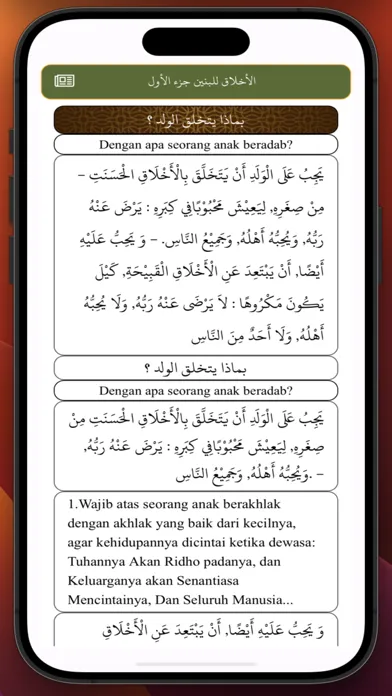 الأخلاق للبنين جزء الأول
بماذا يتخلق الولد ؟
Dengan apa seorang anak beradab?
يَجِبُ عَلَى الْوَلَدِ أَنْ يَتَخَلَّقَ بِالْأَخْلَاقِ الْحَسَنَتِ –
مِنْ صِغَرِهِ, لِيَعِيْشَ مَحْبُوْبًافِي كِبَرِهِ : يَرْضَ عَنْهُ
رَبُّهُ, وَيُحِبُّهُ أَهْلُهُ, وَجَمِيْعُ النَّاسِ. – وَ يَجِبُّ عَلَيْهِ
أَيْضًا, أَنْ يَبْتَعِدَ عَنِ الْأَخْلَاقِ الْقَبِيْحَةِ, كَيْلَ
يَكُونَ مَكْرُوهًا : لاَ يَرْضَى عَنْهُ رَبُّهُ, وَلَا يُحِبُّهُ
أَهْلُهُ, وَلَا أَحَدٌ مِنَ النَّاسِ
بماذا يتخلق الولد ؟
Dengan apa seorang anak beradab?
يَجِبُ عَلَى الْوَلَدِ أَنْ يَتَخَلَّقَ بِالْأَخْلَاقِ الْحَسَنَتِ مِنْ
صِغَرِهِ, لِيَعِيْشَ مَحْبُوْبًافِي كِبَرِهِ : يَرْضَ عَنْهُ رَبُّهُ,
وَيُحِبُّهُ أَهْلُهُ, وَجَمِيْعُ النَّاسِ. –
1.Wajib atas seorang anak berakhlak
dengan akhlak yang baik dari kecilnya,
agar kehidupannya dicintai ketika dewasa:
Tuhannya Akan Ridho padanya, dan
Keluarganya akan Senantiasa
Mencintainya, Dan Seluruh Manusia...
وَ يَجِبُّ عَلَيْهِ أَيْضًا, أَنْ يَبْتَعِدَ عَنِ الْأَخْلَاقِ